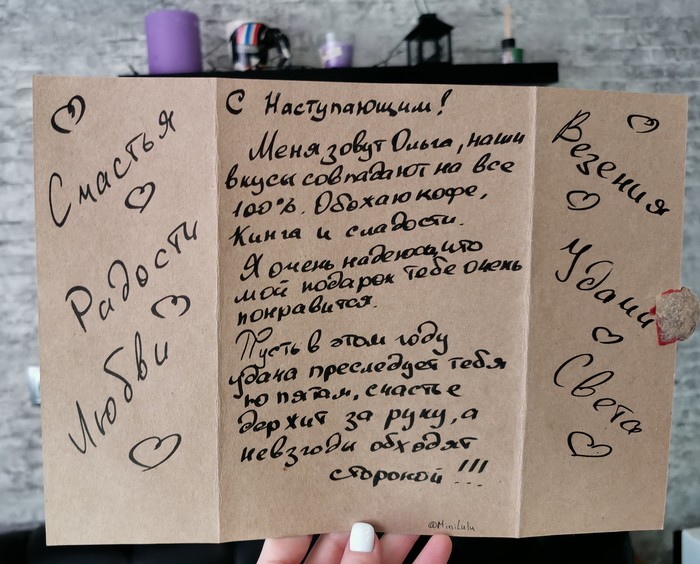 Счастья
Радости
Любви
С Наступающим!
Меня зовут Ольга, наши
вкусы совпадают на все
100%. Обожаю кофе,
Кинга и сладости.
Я очень надеюсь, что
мой подарок тебе очень
понравится.
Пусть в этом году
удача преследует тебя
по пятам, счастье
держит за руку, а
невзгоды обходят
стороной!!!
@MiniLulu
Везения
Удачи
Света